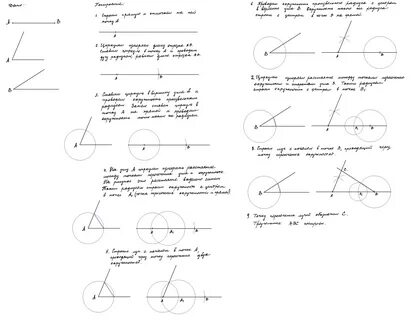 Дано:
A B
A
B
Построение:
1. Строим прямую и отмечаем на ней
точку A
A
2. Циркулем измеряем длину отрезка AB.
Ставим циркуль в точку A и проводим
дугу радиусом равным длине отрезка AB.
A B
3. Ставим циркуль в вершину угла A и
проводим окружность произвольным
радиусом. Затем ставим циркуль в
точку A на прямой и проводим
окружность точно таким же радиусом
A A B
4. Для угла A циркулем измеряем расстояние
между точками пересечения угла и окружности.
На рисунке это расстояние
Таким радиусом строим окружность с центром
в точке A₁ (точка пересечения окружности и прямой)
A A A₁ B
5. Строим луч с началом в точке A,
проходящий через точку пересечения двух
окружностей.
A A A₁ B
6. Проводим окружность произвольного радиуса с центром
в вершине угла B. таким же радиусом
строим с центром в точке B на прямой.
B A B
7. Циркулем измеряем расстояние между точками пересечения
окружности и сторонами угла B. Таким радиусом
строим окружность с центром в точке B₁
B A B₁ B
8. Строим луч с началом в точке B, проходящий через
точку пересечения окружностей.
B A B₁ B
9. Точку пересечения лучей обозначим C.
Треугольник ABC построен.